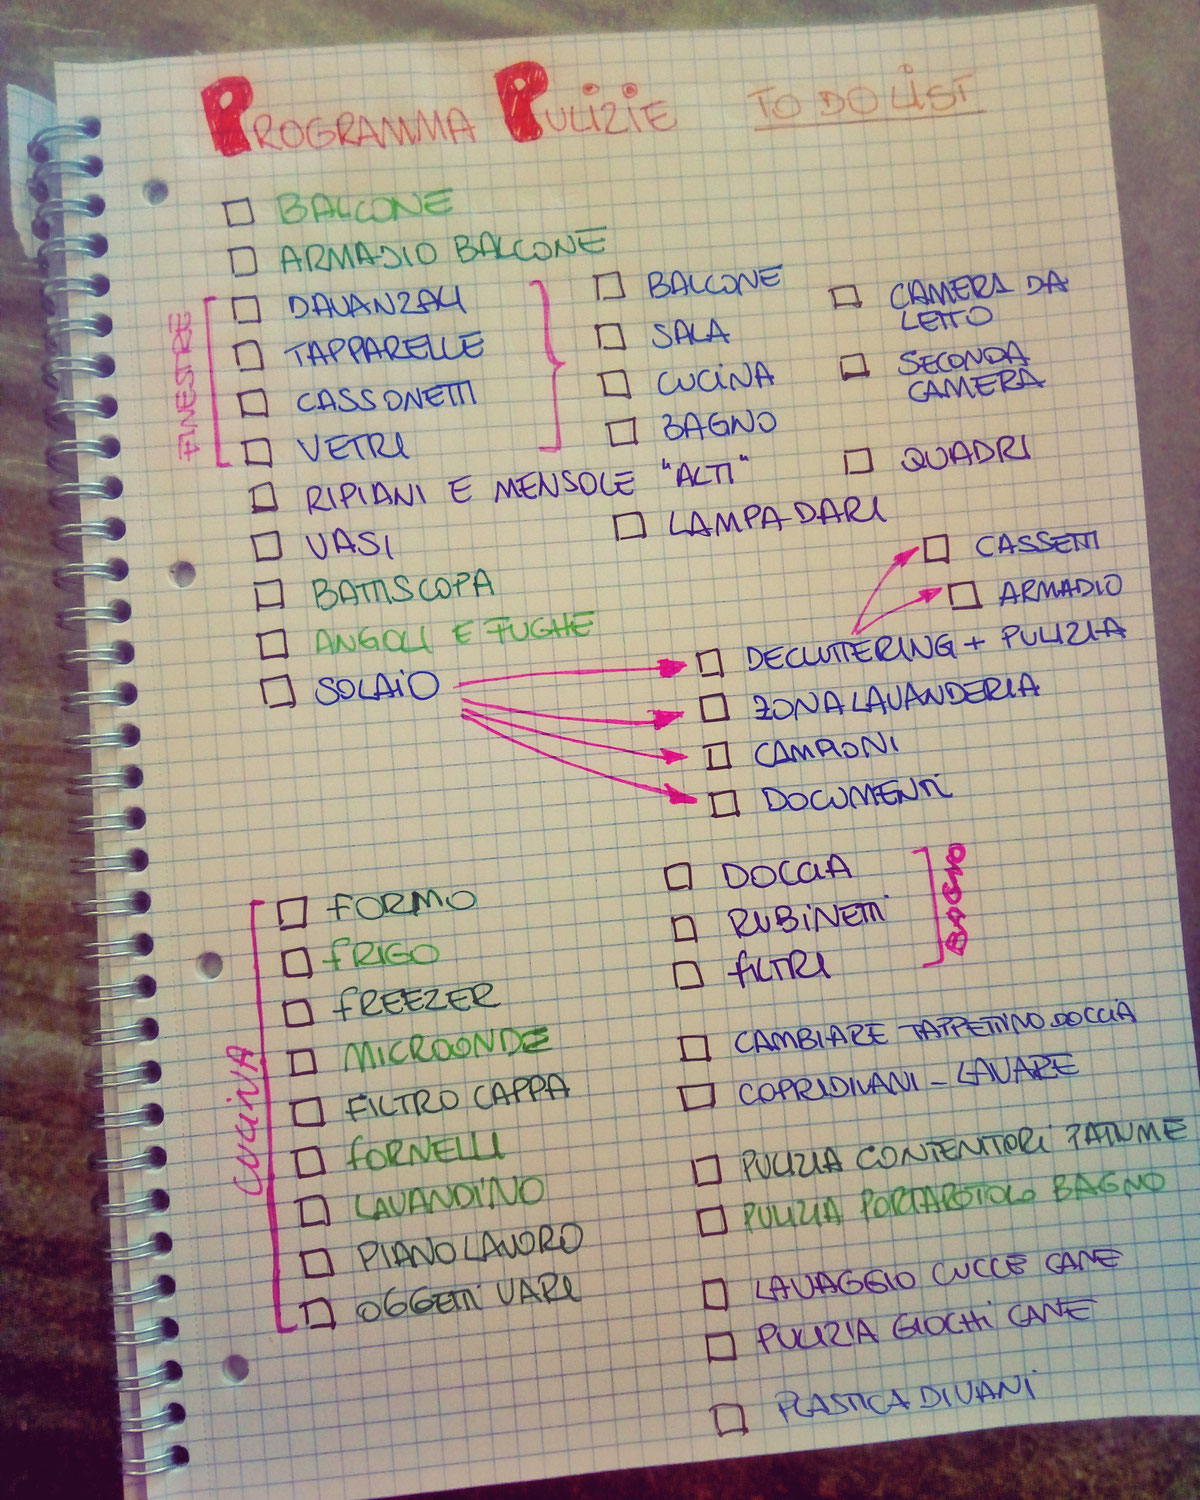 PROGRAMMA PULIZIE TO DO LIST
BALCONE
ARMADIO BALCONE
FINESTRE
DAVANZALI
TAPPARELLE
CASSONETTI
VETRI
BALCONE
SALA
CUCINA
BAGNO
CAMERA DA
LETTO
SECONDA
CAMERA
RIPIANI E MENSOLE "ALTI"
QUADRI
VASI
LAMPADARI
BATTISCOPA
ANGOLI E FUGHE
SOLAIO
CASSETTI
ARMADIO
DECLUTTERING + PULIZIA
ZONA LAVANDERIA
CAMPIONI
DOCUMENTI
CUCINA
FORMO
FRIGO
FREEZER
MICROONDE
FILTRO CAPPA
FORNELLI
LAVANDINO
PIANO LAVORO
OGGETTI VARI
DOCCIA
RUBINETTI
FILTRI
BAGNO
CAMBIARE TAPPETTINO DOCCIA
COPRIDIVANI - LAVARE
PULIZIA CONTENITORI PATUME
PULIZIA PORTAROTOLO BAGNO
LAVAGGIO CUCCE CANE
PULIZIA GIOCHI CANE
PLASTICA DIVANI